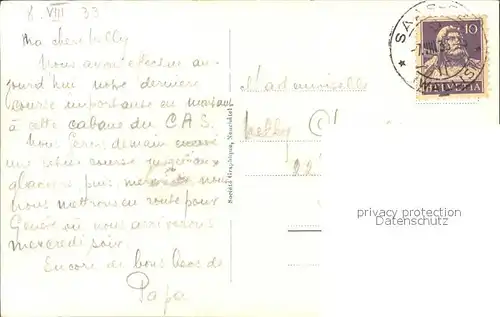 8. VIII 33
Ma chère Nelly
Nous avons effectué au-
jourd'hui notre dernière
course importante en montant
à cette cabane du CAS.
Nous ferons demain encore
une course jusqu'aux
glaciers puis nous
nous mettrons en route pour
Genève où nous arriverons
mercredi soir.
Encore de bons becs de
Papa
Mademoiselle
Nelly
22
10
HELVETIA
privacy protection
Datenschutz